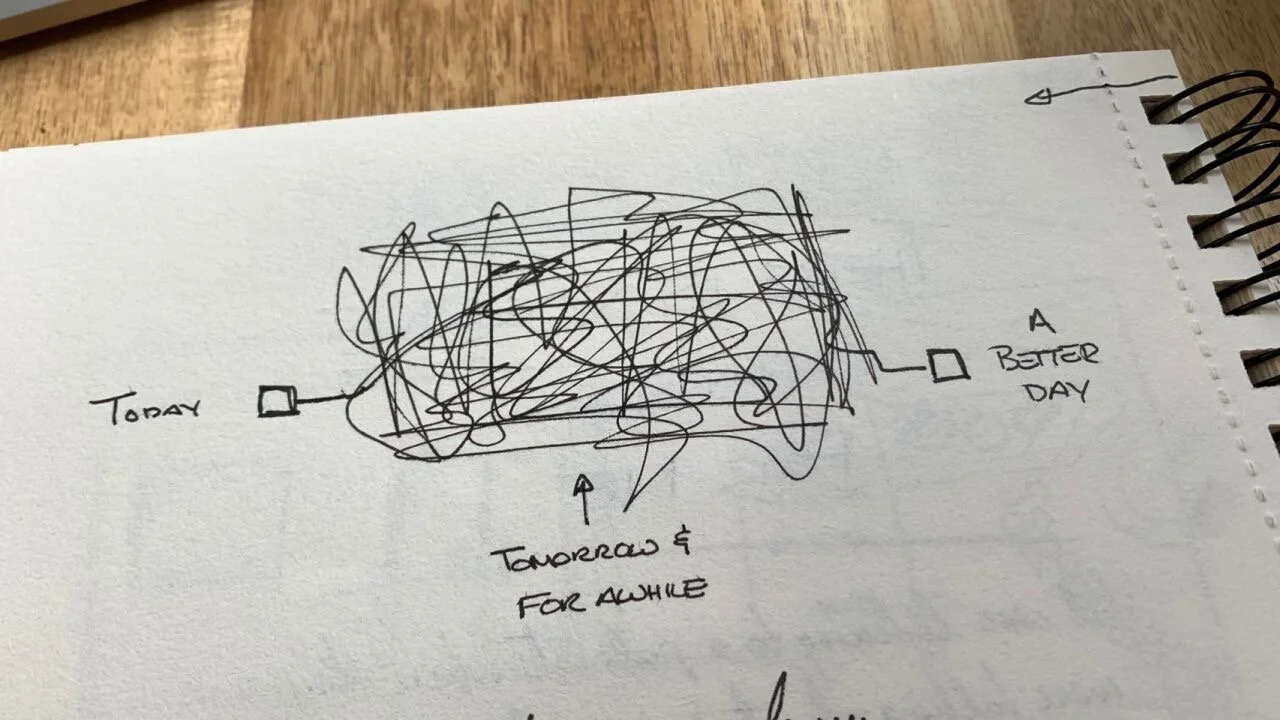 TODAY
A
BETTER
DAY
TOMORROW &
FOR AWHILE